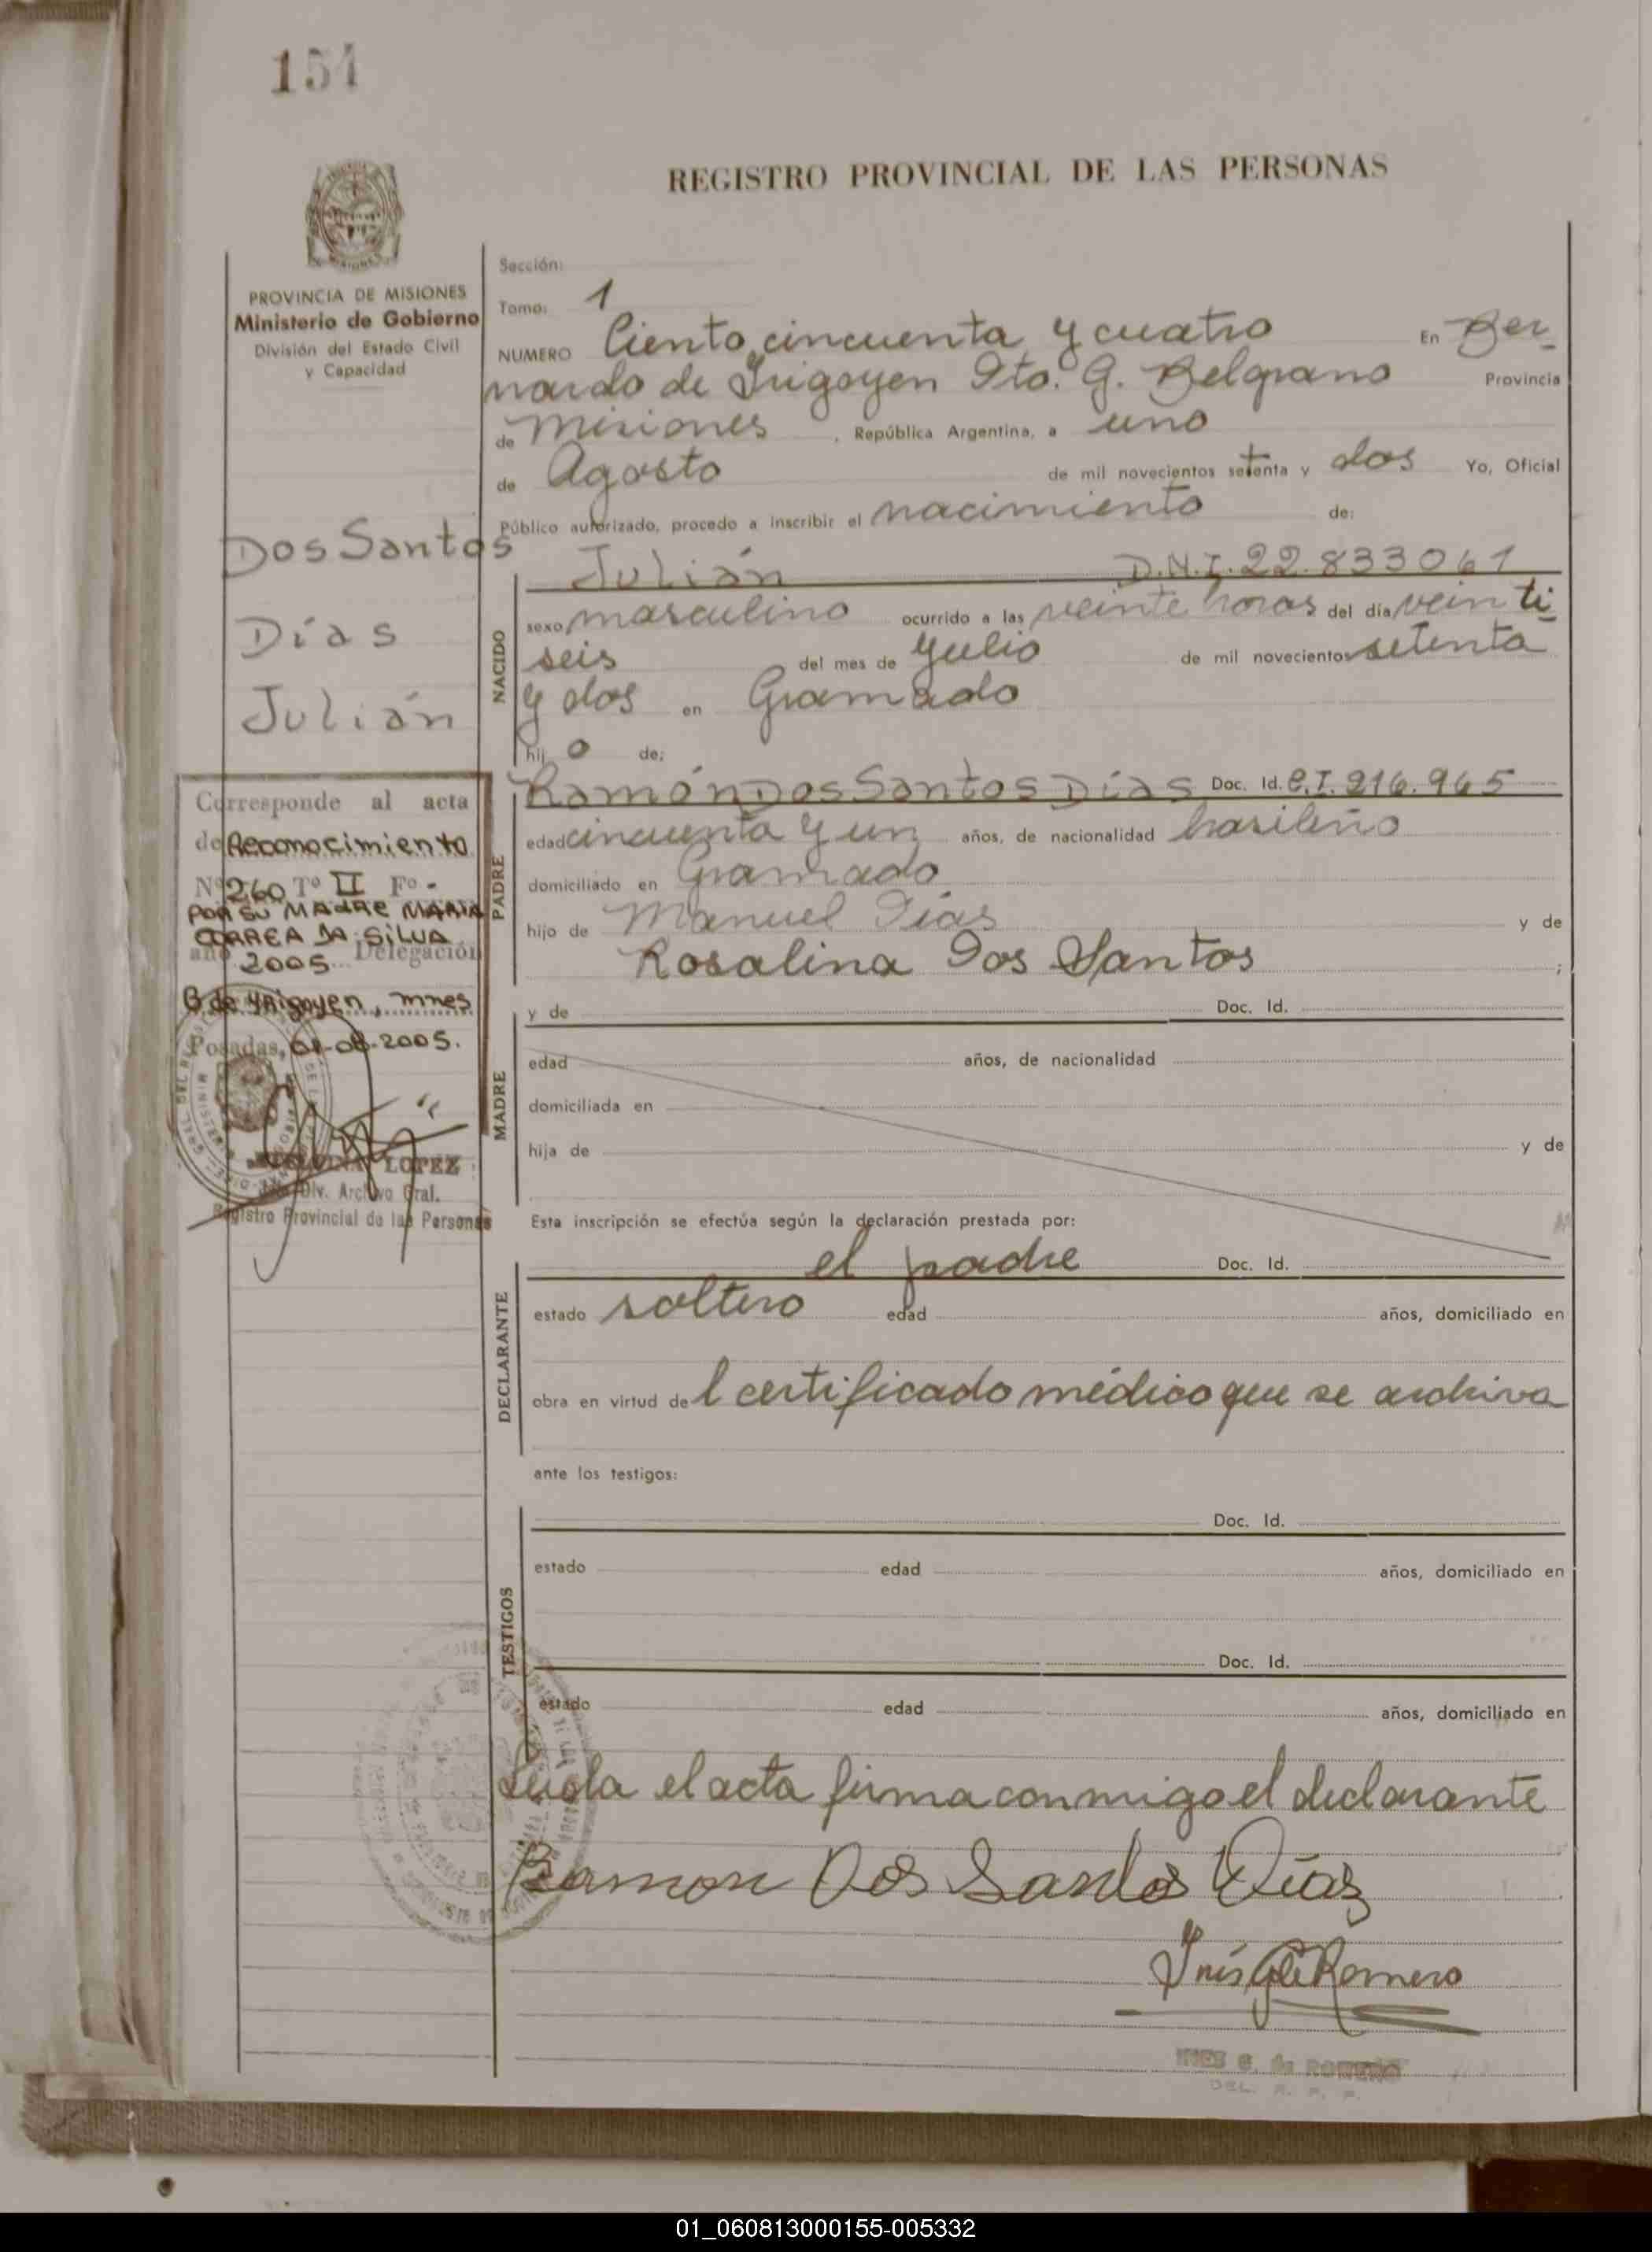 154
REGISTRO PROVINCIAL DE LAS PERSONAS
PROVINCIA DE MISIONES
Ministerio de Gobierno
División del Estado Civil
y Capacidad
Dos Santos
Días
Julián
Corresponde al acta
de Reconocimiento
Nº 260 Tº II Fº -
POR SU MADRE MARIA
CORREA DA SILVA
año 2005 Delegación
B de YRigoyen, mnes
Posadas, 01-08-2005.
LOPEZ
Div. Archivo Gral.
Registro Provincial de las Personas
Sección:
Tomo: 1
NUMERO Ciento cincuenta y cuatro En Ber-
nardo de Irigoyen Dto. G. Belgrano Provincia
de Misiones, República Argentina, a uno
de Agosto de mil novecientos setenta y dos Yo, Oficial
Público autorizado, procedo a inscribir el nacimiento de:
Julián D.N.I. 22.833061
NACIDO
sexo masculino ocurrido a las veinte horas del día veinti
seis del mes de Julio de mil novecientos setenta
y dos en Gramado
hijo de:
PADRE
Ramón Dos Santos Días Doc. Id. C.I. 216.965
edad cincuenta y un años, de nacionalidad brasileño
domiciliado en Gramado
hijo de Manuel Días y de
Rosalina Dos Santos ;
MADRE
y de Doc. Id.
edad años, de nacionalidad
domiciliada en
hija de y de
Esta inscripción se efectúa según la declaración prestada por:
DECLARANTE
el padre Doc. Id.
estado soltero edad años, domiciliado en
obra en virtud del certificado médico que se archiva
ante los testigos:
TESTIGOS
Doc. Id.
estado edad años, domiciliado en
Doc. Id.
estado edad años, domiciliado en
Leída el acta firma conmigo el declarante
Ramon Dos Santos Días
Inés G. de Romero
INES G. de ROMERO
01_060813000155-005332